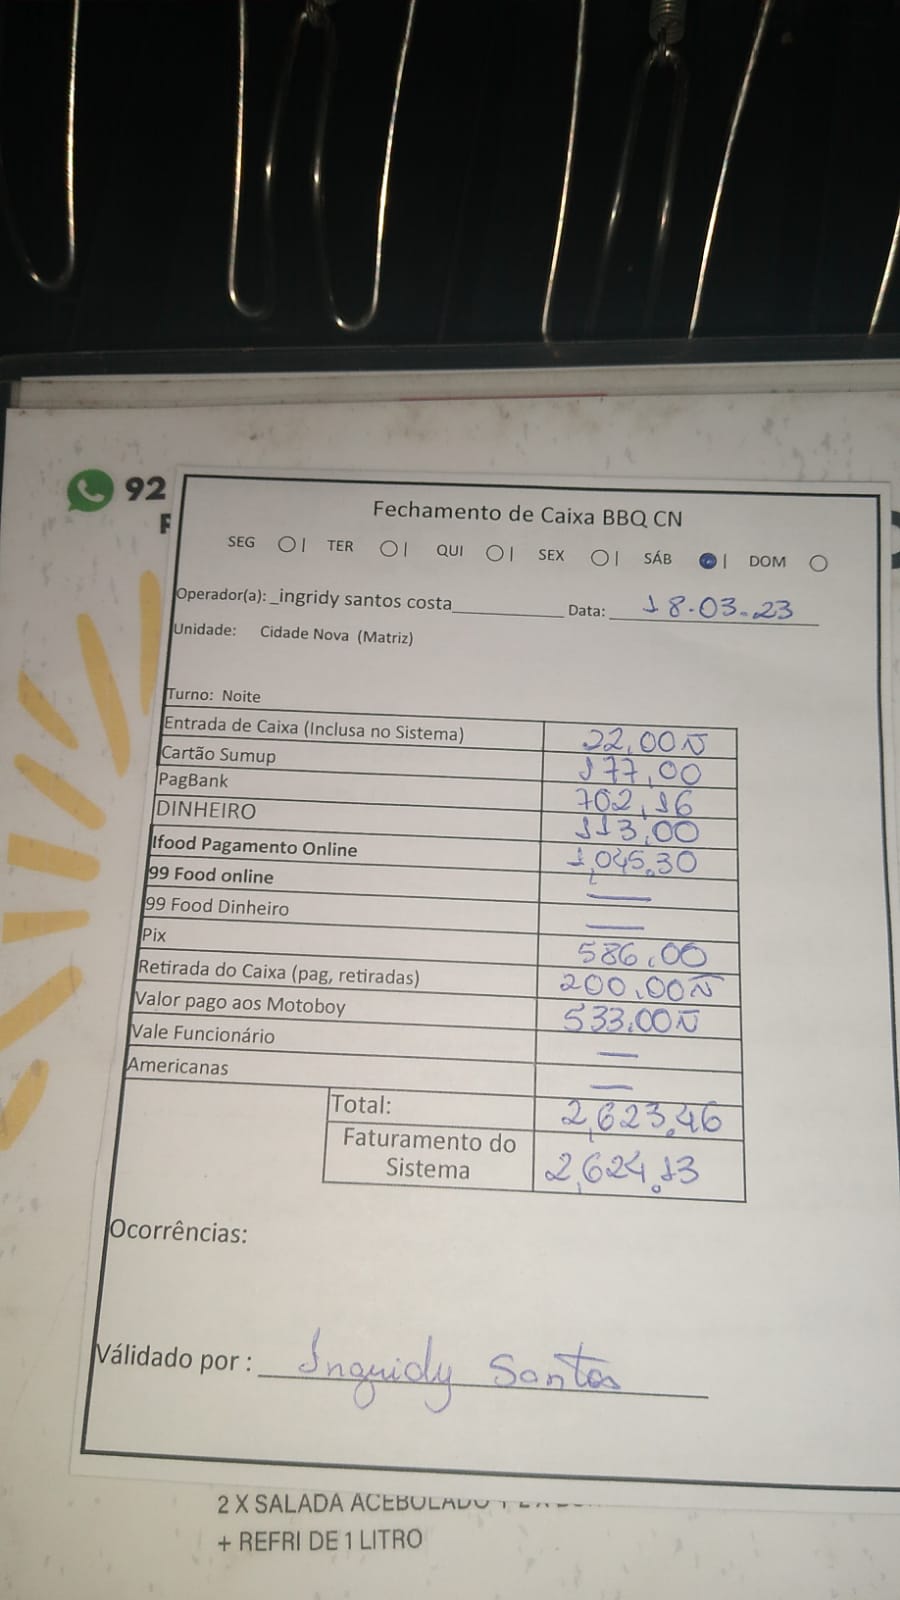 92
Fechamento de Caixa BBQ CN
SEG ○| TER ○| QUI ○| SEX ○| SÁB ●| DOM ○
Operador(a):_ingridy santos costa__________ Data: 18-03-23
Unidade: Cidade Nova (Matriz)
Turno: Noite
Entrada de Caixa (Inclusa no Sistema) 22,00 N
Cartão Sumup 177,00
PagBank 702,16
DINHEIRO 113,00
Ifood Pagamento Online 1,045.30
99 Food online —
99 Food Dinheiro —
Pix 586,00
Retirada do Caixa (pag, retiradas) 200,00 N
Valor pago aos Motoboy 533.00 N
Vale Funcionário —
Americanas —
Total: 2,623.46
Faturamento do
Sistema 2,624.13
Ocorrências:
Válidado por : Ingridy Santos
2 X SALADA ACEBOLADO
+ REFRI DE 1 LITRO